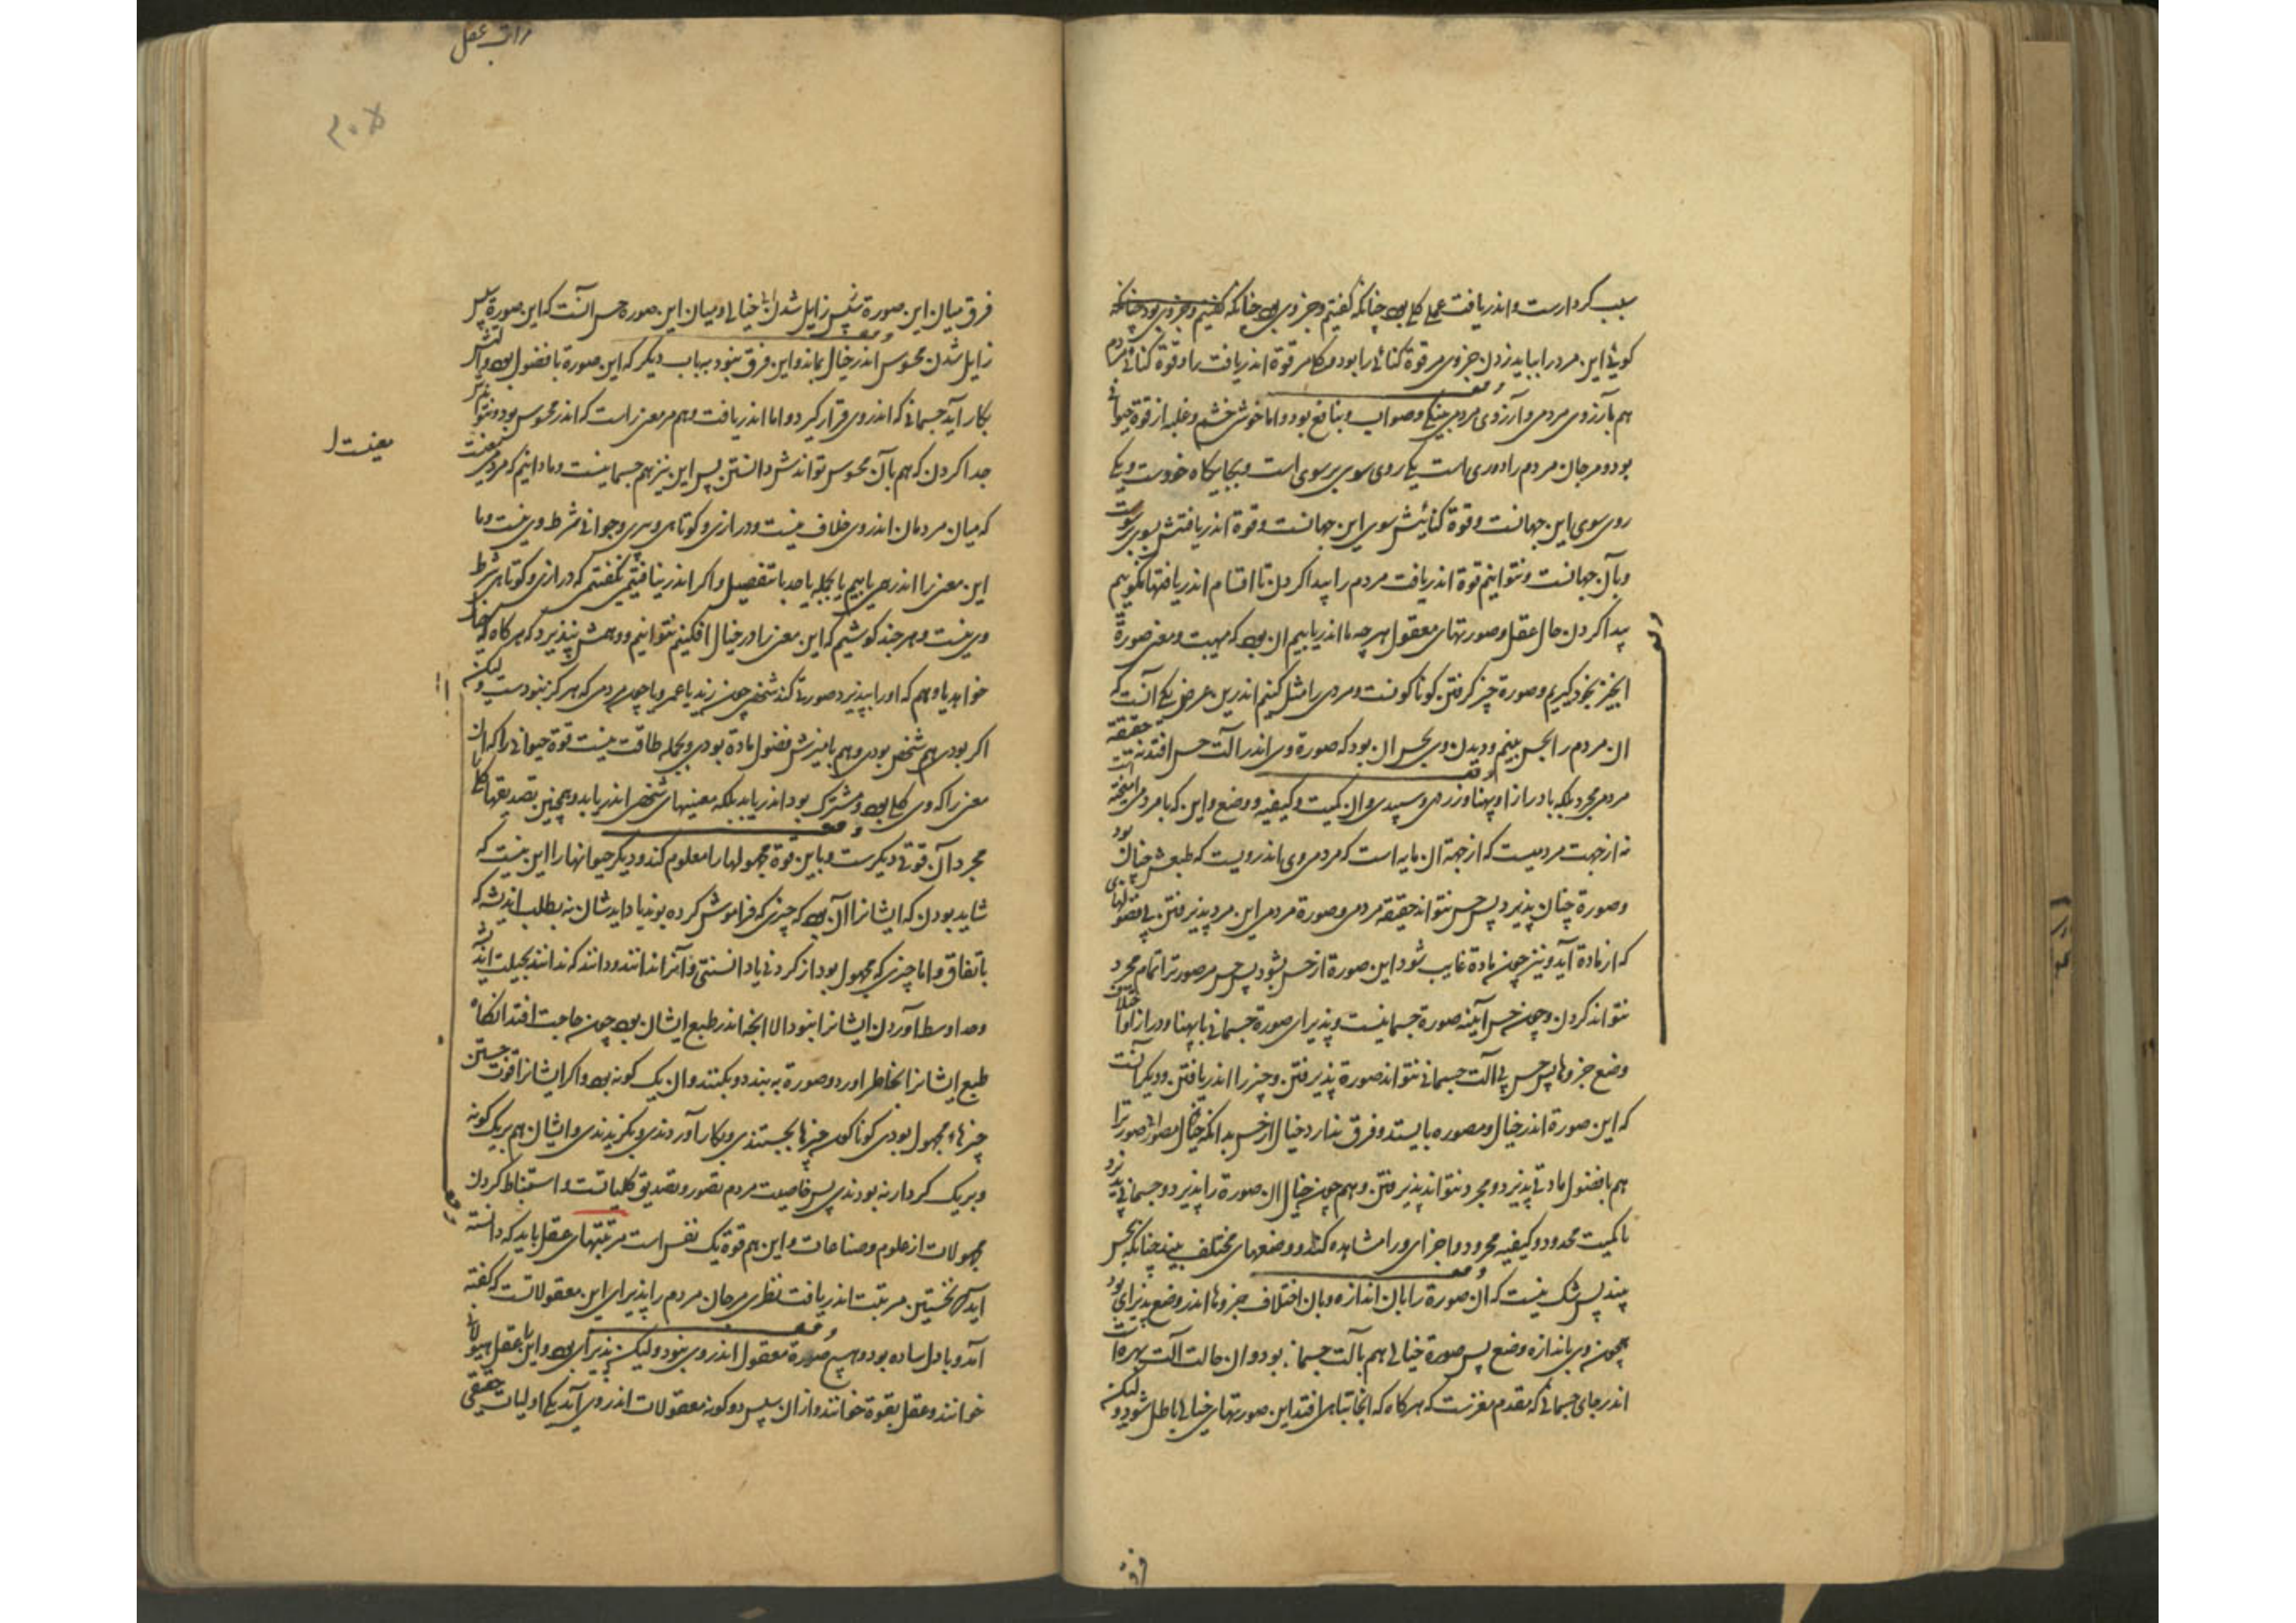 سبب کردارست و اندر یافت عملی کلی بود چنانکه گفتیم و جزوی بود چنانکه گفتیم و جزوی بود چنانکه
کوئی این مرد را بباید زدن جزوی مر قوة کنائی را بود و حکم مر قوة اندر یافت را و قوة کنائی مردم
هم بآرزوی مردمی و آرزوی مردمی نیکی و صواب و نافع بود و اما خوشی خشم و غلبه از قوة حیوانی
بود و مر جان مردم را دو روی است یکی روی سوی برسوی است و بجایگاه خودست و یکی
روی سوی این جهانست و قوة کنائیش سوی این جهانست و قوة اندر یافتش بسوی برسوست
و بآن جهانست و نتوانیم قوة اندر یافت مردم را پیدا کردن تا اقسام اندر یافتها نگوییم
پیدا کردن حال عقل و صورتهای معقول هر چه ما اندر یابیم آن بود که مهیت و معنی صورة
آنچیز بخود گیریم و صورة چیز گرفتن گوناگونست و مردمی را مثل کنیم اندرین عرض یکی آنست که
آن مردم را بحس بینیم و دیدن وی بحس آن بود که صورة وی اندر آلت حس افتد نه حقیقة
مردم مجرد بلکه با درازا و پهنا و زردی و سپیدی و آن کمیت و کیفیه و وضع و این که با مردمی آمیخته است
نه از جهت مردمیست که از جهة آن مایه است که مردمی وی اندر ویست که طبعش چنان بود
و صورة چنان پذیرد پس حس نتواند حقیقة مردمی و صورة مردمی این مرد پذیرفتن بی فضولهای
که از مادة آید و نیز چون مادة غایب شود این صورة از حس بشود پس حس مر صورترا تمام مجرد
نتواند کردن و چون حس آینه صورة جسمانیست و پذیرای صورة جسمانی با پهنا و درازا و اختلاف
وضع جزوها پس حس بی آلت جسمانی نتواند صورة پذیرفتن و چیز را اندر یافتن و دیگر آنست
که این صورة اندر خیال و مصوره بایستد و فرق ندارد خیال از حس بدانکه خیال مصور صورترا
هم با فضول مادتی پذیرد و مجرد نتواند پذیرفتن و هم چون خیال آن صورة را پذیرد و جسمانی پذیرد
با کمیت محدود و کیفیه محدود و اجزای ورا مشاهده کند و وضعهای مختلف بیند چنانکه بحس
بیند پس شک نیست که آن صورة را بآن اندازه و بآن اختلاف جزوها اندر وضع پذیرای بود
همچون وی باندازه و وضع پس صورة خیالی هم بآلت جسمانی بود و آن حالت آلت بهره است
اندر جای جسمانی که مقدم مغزست که هرگاه که آنجا تباهی افتد این صورتهای خیالی باطل شود و لیکن
مراتب عقل
۲۰۵
فرق میان این صورة سپس زایل شدن خیالی و میان این صوره حس آنست که این صورة سپس
زایل شدن محسوس اندر خیال بماند و این فرق نبود بباب دیگر که این صورة با فضول بود و آلتش
بکار آید جسمانی که اندر وی قرار گیرد و اما اندر یافت وهم مر معنی راست که اندر محسوس بود و نتواندش
جدا کردن که هم بآن محسوس تواندش دانستن پس این نیز هم جسمانیست و ما دانیم که مردمی معنیست
که میان مردمان اندر وی خلاف نیست و درازی و کوتاهی و پیری و جوانی شرط وی نیست و ما
این معنی را اندر همی یابیم یا بجمله یا حد با تفصیل و اگر اندر نیافتیمی نگفتیمی که درازی و کوتاهی شرط
وی نیست و هر چند کوشیم که این معنی را در خیال افکنیم نتوانیم و وهمش نپذیرد که هرگاه که خیال
خواهد یا وهم که او را بپذیرد صورة کند شخصی چون زید یا عمر و یا چون مردمی که هرگز نبودست و لیکن
اگر بودی هم شخصی بودی و هم بآمیزش فضول مادة بودی و بجمله طاقت نیست قوة حیوانی را که آن
معنی را که وی کلی بود و مشترک بود اندر یابد بلکه معنیهای شخصی اندر یابد و همچنین تصدیقهاء کلی
مجرد آن قوتی دیگرست و باین قوة مجهولها را معلوم کند و دیگر حیوانها را این نیست که
شاید بودن که ایشانرا آن بود که چیزی که فراموش کرده بوند یاد ایدشان نه بطلب اندیشه که
باتفاق و اما چیزی که مجهول بود از کردنی یا دانستنی و آنرا ندانند و دانند که ندانند بحیلت اندیشه
و حد اوسط آوردن ایشانرا نبود الا آنچه اندر طبع ایشان بود چون حاجت افتد آنگاه
طبع ایشانرا بخاطر آورد و صورة به بندد و بکنند و آن یک گونه بود و اگر ایشانرا قوت جستن
چیزهاء مجهول بودی گوناگون چیزها بجستندی و بکار آوردندی و بگزیدندی و ایشان هم بر یک گونه
و بر یک کردار نه بودندی پس خاصیت مردم تصور و تصدیق کلیاتست و استنباط کردن
مجهولات از علوم و صناعات و این هم قوة یک نفس است مرتبتهای عقل باید که دانسته
آید که نخستین مرتبت اندر یافت نظری مر جان مردم را پذیرای این معقولاتست که گفته
آمد و با دل ساده بود و هیچ صورة معقول اندر وی نبود و لیکن پذیرای بود و این را عقل هیولانی
خوانند و عقل بقوة خوانند و از آن سپس دو گونه معقولات اندر وی آید یکی اولیات حقیقی
معنیست